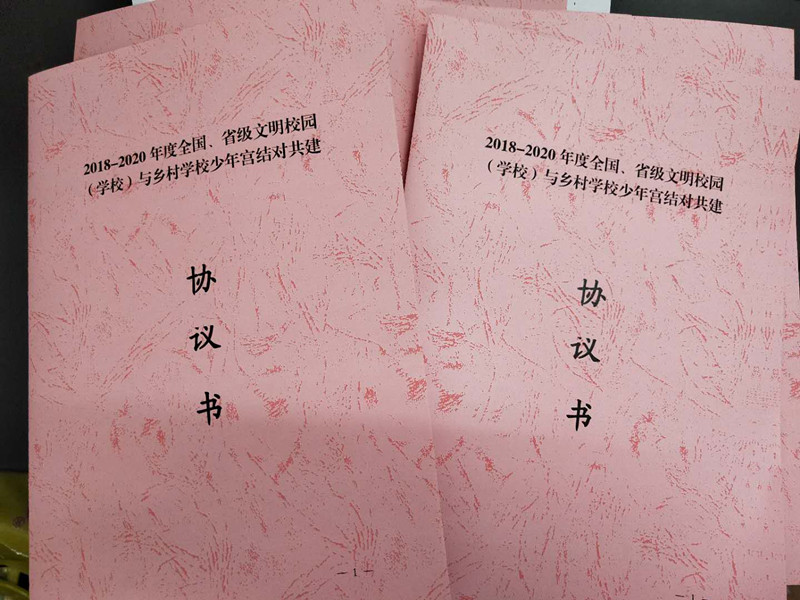 2018-2020 年度全国、省级文明校园
（学校）与乡村学校少年宫结对共建
协
议
书
— 1 —
2018-2020 年度全国、省级文明校园
（学校）与乡村学校少年宫结对共建
协
议
书
— 1 —